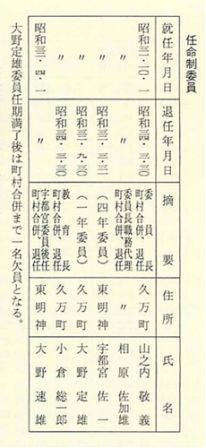 任命制委員
就任年月日 退任年月日 摘要 住所 氏名
昭和三一・一〇・一 昭和三四・三・三〇 委員長 町村合併、退任 久万町 山之内 敬義
〃 〃 委員長職務代理 町村合併、退任 〃 相原 佐加雄
〃 (四年委員) 東明神 宇都宮 佐一
〃 昭和三二・九・三〇 (一年委員) 久万町 大野 定雄
〃 昭和三四・三・三〇 教育長 町村合併、退任 久万町 小倉 総一郎
〃 宇都宮委員後任 町村合併、退任 東明神 大野 速雄
大野定雄委員任期満了後は町村合併まで一名欠員となる。